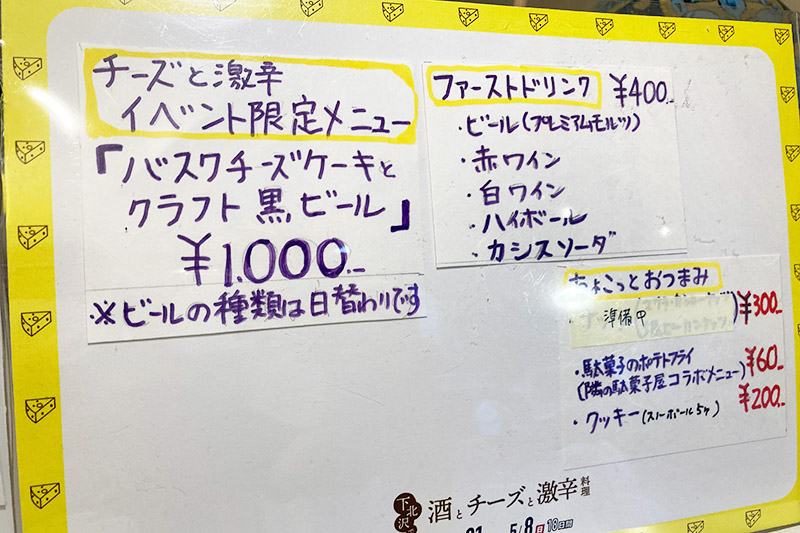 チーズと激辛
イベント限定メニュー
「バスクチーズケーキと
クラフト黒ビール」
¥1.000.-
※ビールの種類は日替わりです
ファーストドリンク ¥400.-
・ビール(プレミアムモルツ)
・赤ワイン
・白ワイン
・ハイボール
・カシスソーダ
ちょこっとおつまみ
準備中 ) ¥300.-
・駄菓子のポテトフライ ¥60.-
(隣の駄菓子屋コラボメニュー)
・クッキー(スノーボール5ヶ) ¥200.-
下北沢
酒とチーズと激辛料理
5/8日 18日間